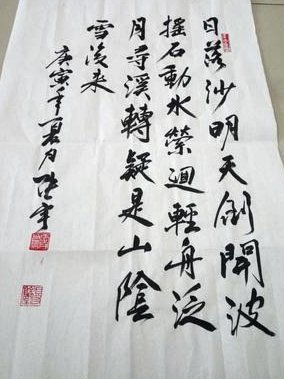 日落沙明天倒開波
搖石動水縈迴輕舟泛
月尋溪轉疑是山陰
雪後来
庚寅年夏月